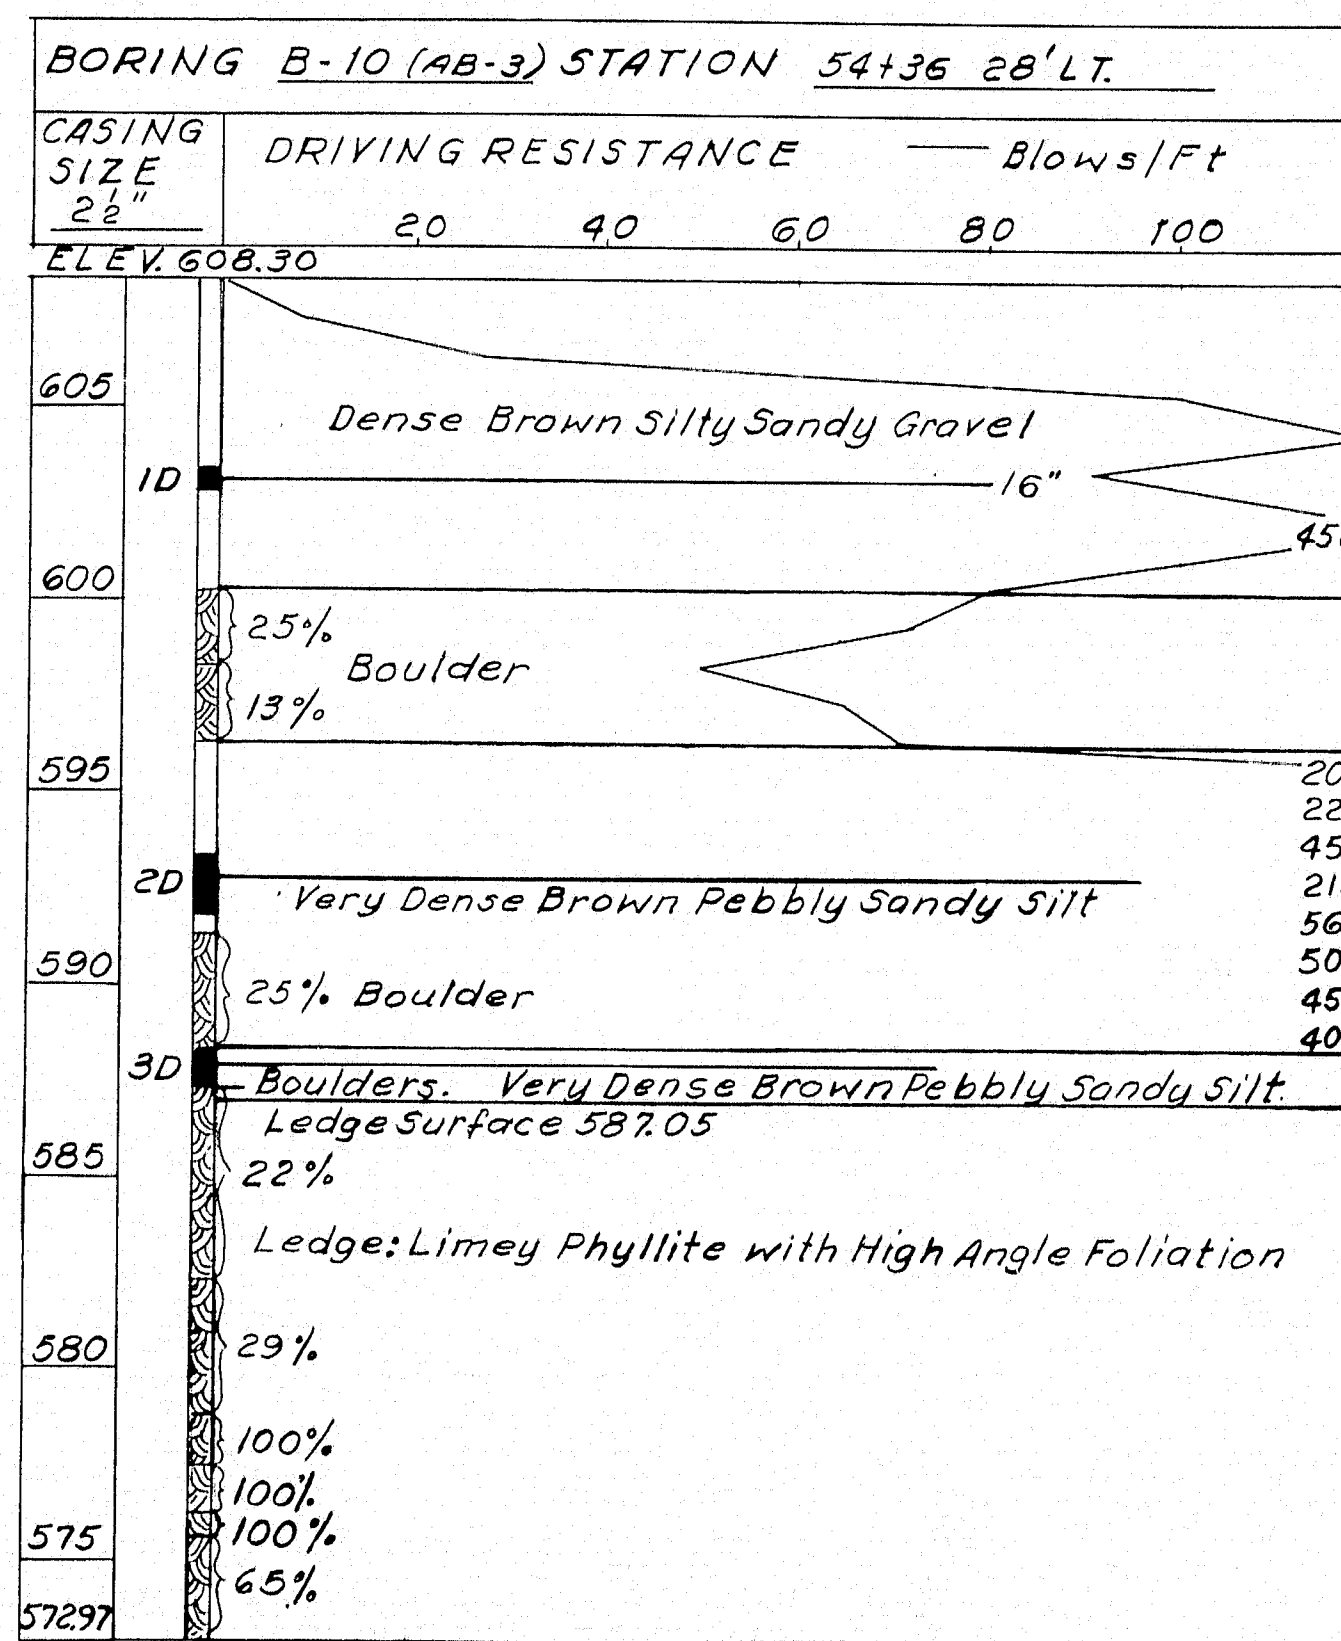 BORING B-10 (AB-3) STATION 54+36 28' LT.
CASING SIZE 2½"
DRIVING RESISTANCE — Blows/Ft
20 40 60 80 100
ELEV. 608.30
605
Dense Brown Silty Sandy Gravel
1D 16"
45
600
25%
Boulder
13%
595
20
22
45
2D
21
Very Dense Brown Pebbly Sandy Silt
56
590
50
25% Boulder
45
40
3D
Boulders. Very Dense Brown Pebbly Sandy Silt.
Ledge Surface 587.05
585
22%
Ledge: Limey Phyllite with High Angle Foliation
580
29%
100%
100%
575
100%
65%
572.97